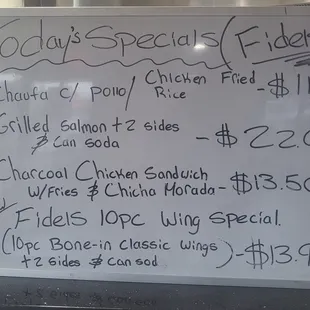 Today's Specials (Fidels
Chaufa c/ pollo/ Chicken Fried Rice - $11
Grilled Salmon + 2 sides
& Can Soda - $22.0
Charcoal Chicken Sandwich
w/Fries & Chicha Morada - $13.50
Fidels 10pc Wing Special.
(10pc Bone-in classic wings) - $13.9
+ 2 sides & Can sod